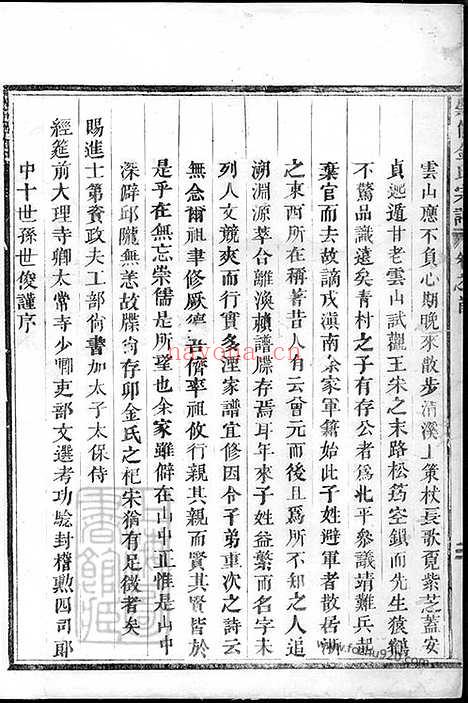 雲山應不負心期晚來散步清溪上策杖長歌覓紫芝蓋安
貞邁遁甘老雲山試觀王宋之末路松筠空鎖而先生猿鶴
不驚品識遠矣青村之子有存公者爲北平參議靖難兵起
棄官而去故戍滇南余家軍籍始此子姓避軍者散居浙
之東西所在著昔人有云曾元而後且爲所不知之人追
溯淵源萃合離渙賴譜牒存焉耳年來子姓益繁而名字未
列人文競爽而行實多湮家譜宜修因令子弟重次之詩云
無念爾祖聿修厥德吾儕率祖攸行親其親而賢其賢皆於
是乎在無忘崇儒是所望也余家雖僻在山中正惟是山中
深僻邱隴無恙故牒尚存卯金氏之杞宋猶有足徵者矣
賜進士第資政大夫工部尚書加太子太保侍
經筵前大理寺卿太常寺少卿吏部文選考功驗封稽勲四司郎
中十世孫世俊謹序
hayona.com
www.foahu93h.com